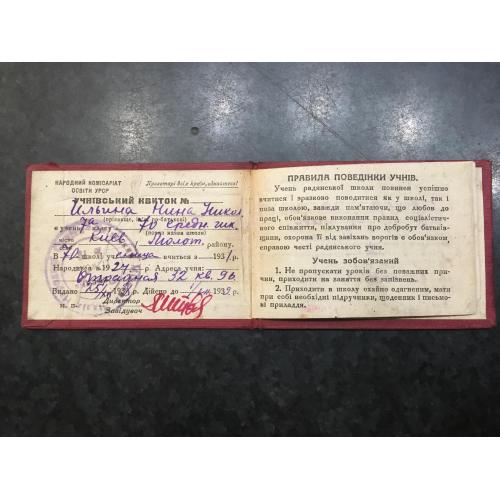 НАРОДНИЙ КОМІСАРІАТ
ОСВІТИ УРСР
Пролетарі всіх країн, єднайтеся!
УЧНІВСЬКИЙ КВИТОК №
Ильина Нина Никол
(прізвище, ім'я, по-батькові)
є учен 7а класу 70 средн. шк.
(повна назва школи)
міста Киев Молот. району.
В 70 школі учиться з 193 р.
Народився 1927 р. Адреса учня:
Отрадная 92 кв 96
Видано 193 р. Дійсно до 193 р.
м. п. Директор
Завідувач
ПРАВИЛА ПОВЕДІНКИ УЧНІВ.
Учень радянської школи повинен успішно
вчитися і зразково поводитися як у школі, так і
поза школою, завжди пам'ятаючи, що любов до
праці, обов'язкове виконання правил соціалістич-
ного співжиття, піклування про добробут батьків-
щини, охорона її від завіхань ворогів є обов'язком
справою честі радянського учня.
Учень зобов'язаний
1. Не пропускати уроків без поважних при-
чин, приходити на заняття без запізнень.
2. Приходити в школу охайно одягненим, мати
при собі необхідні підручники, щоденник і письмо-
ві приладдя.